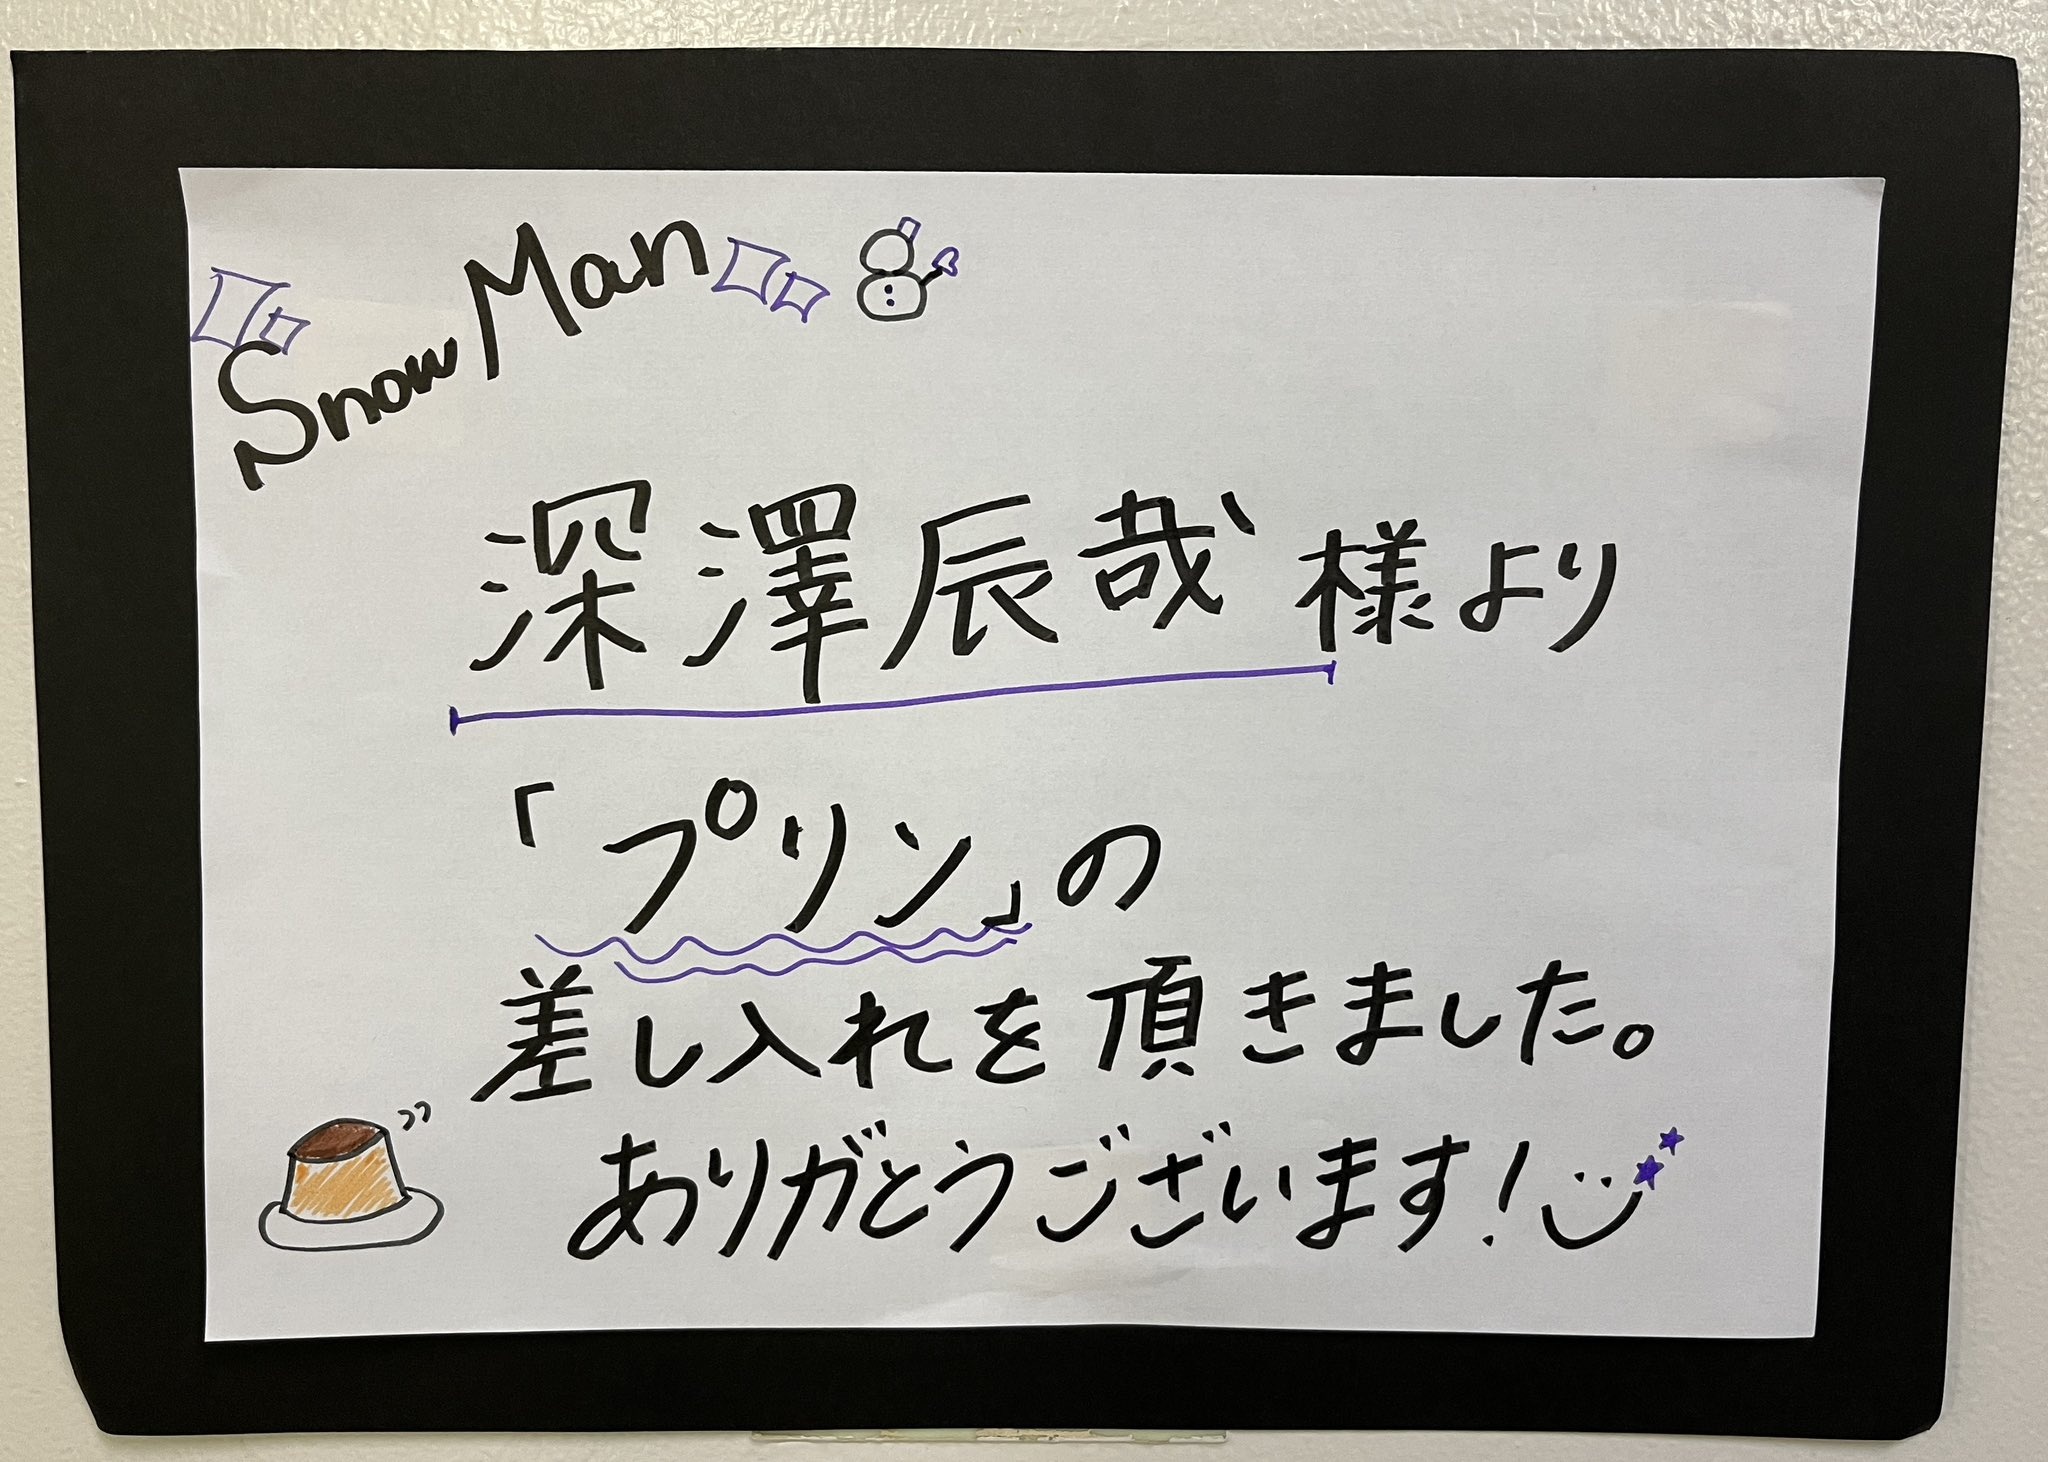 Snow Man
深澤辰哉様より
「プリン」の
差し入れを頂きました。
ありがとうございます!